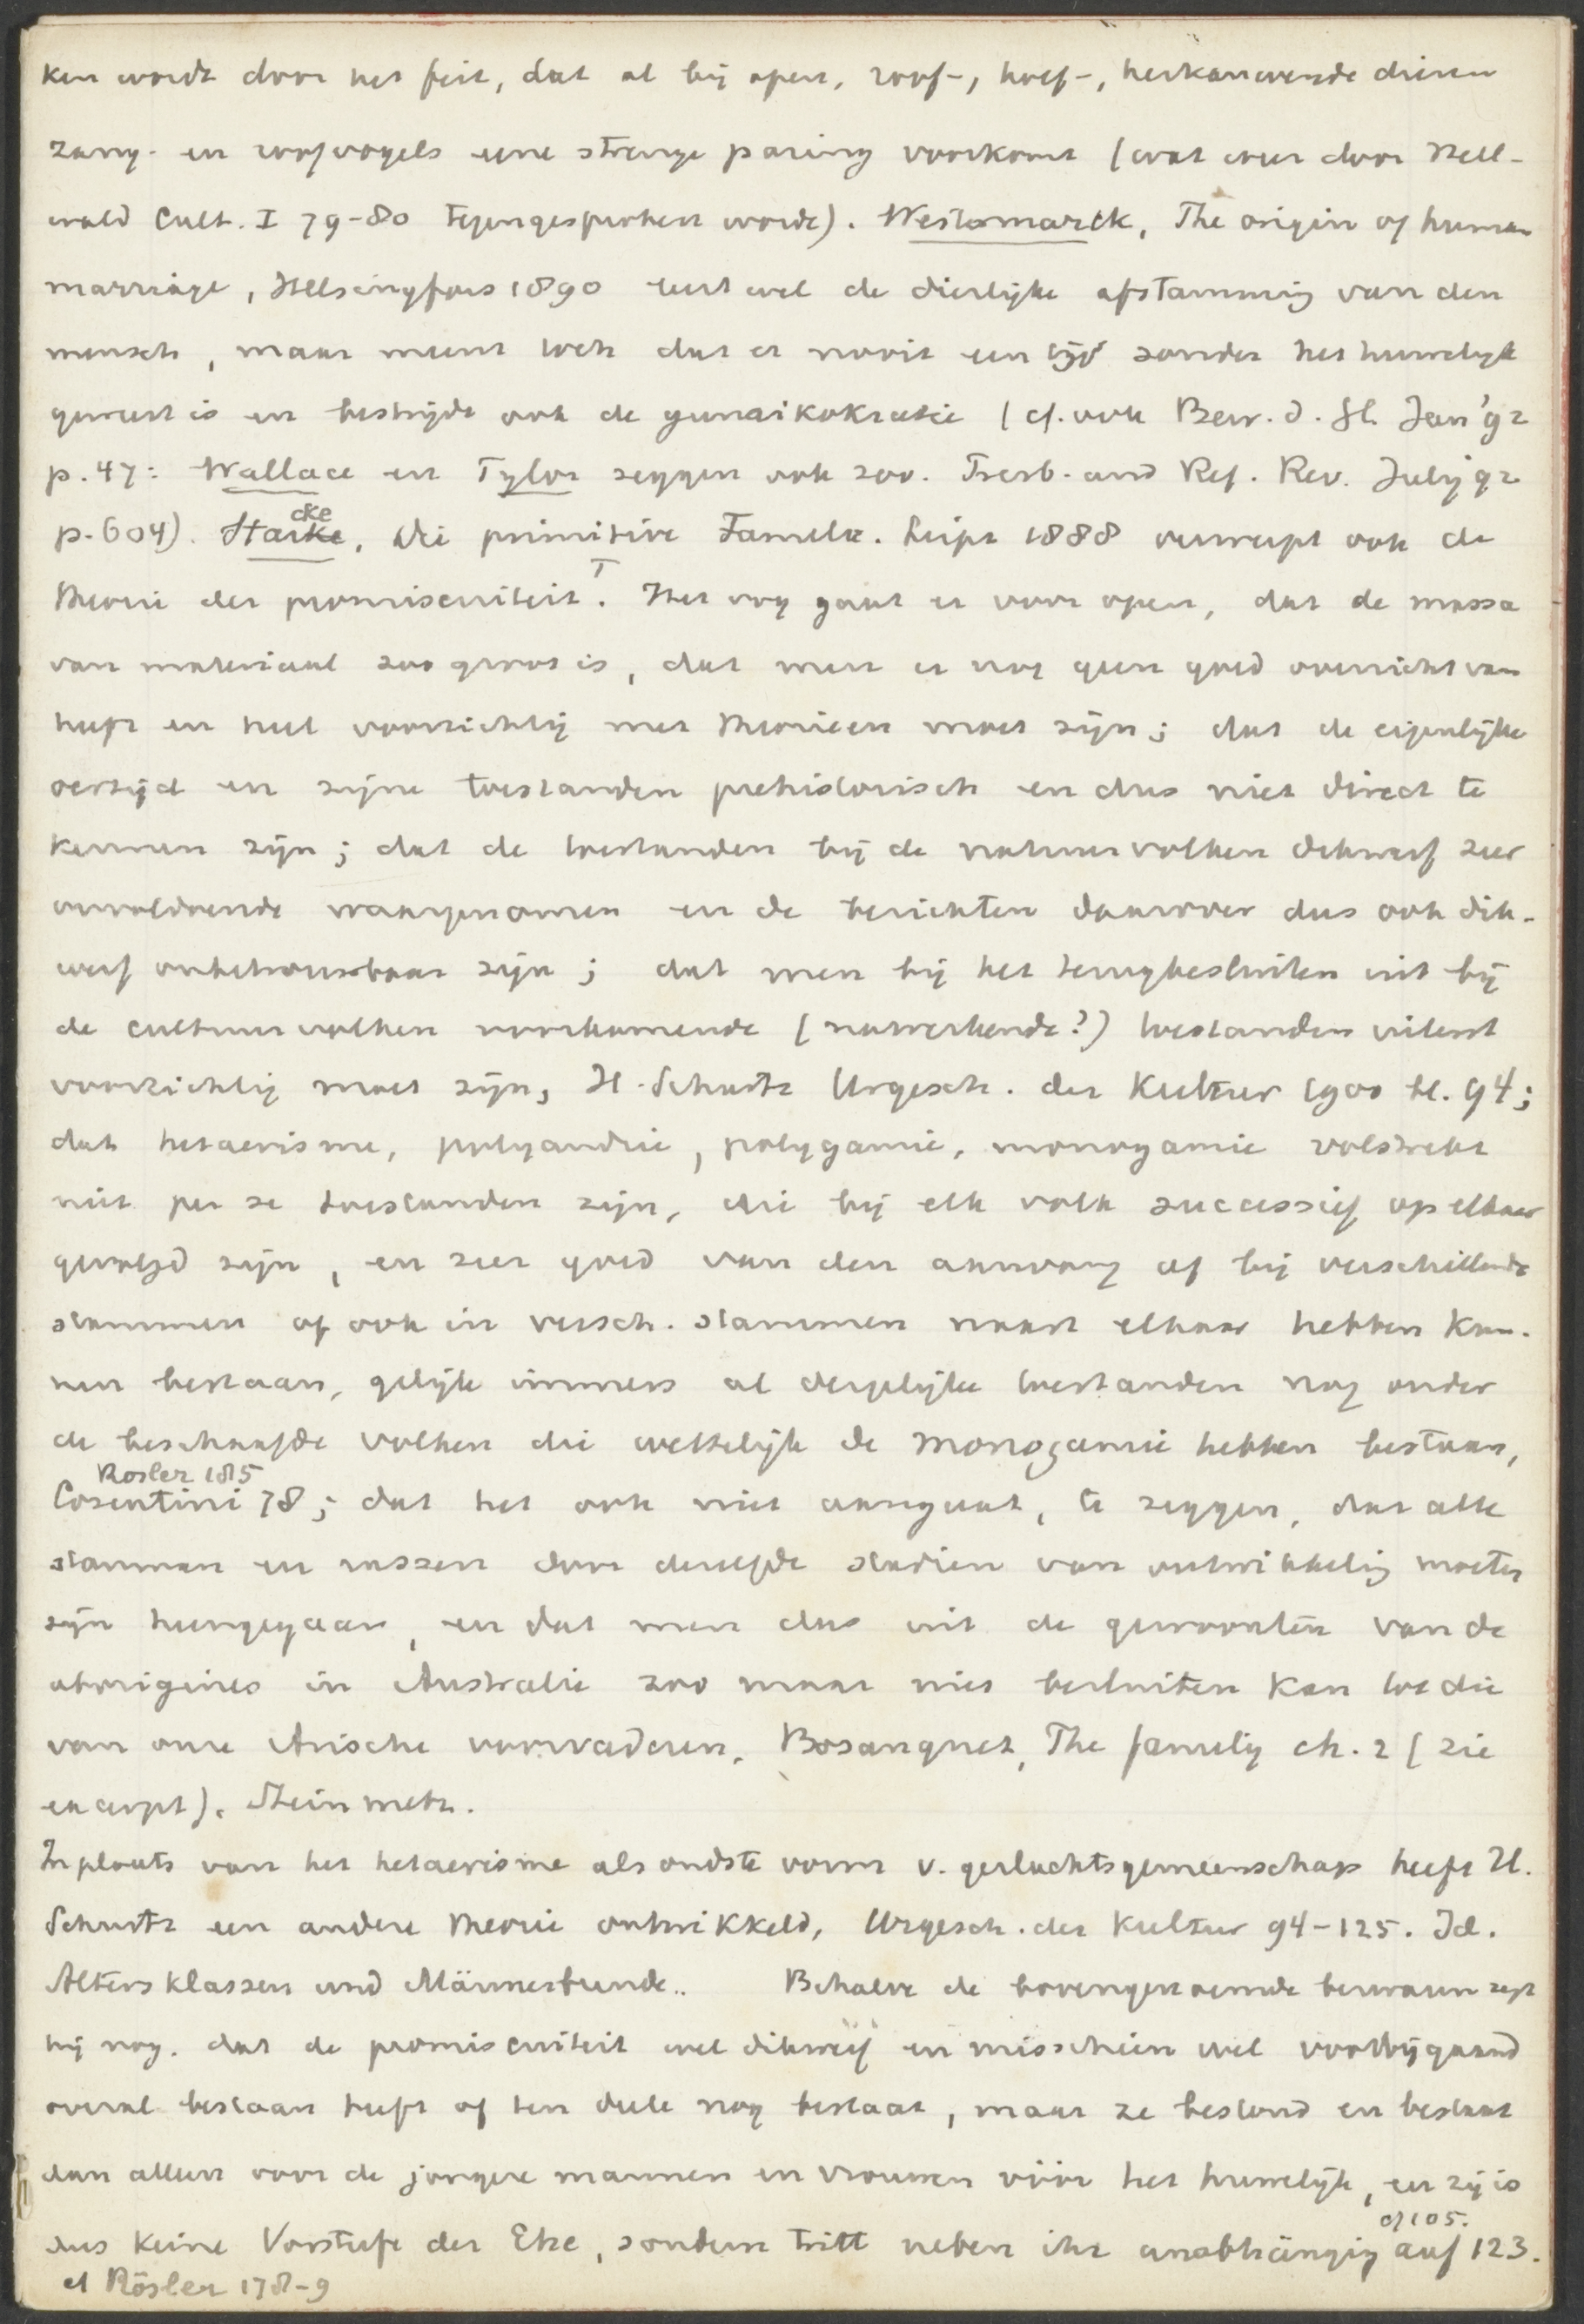 ken wordt door het feit, dat al bij apen, roof-, hoef-, herkauwende dieren
zang- en roofvogels eene strenge paring voorkomt (wat weer door Hell-
wald Cult. I 79-80 tegengesproken wordt). Westermarck, The origin of human
marriage, Helsingfors 1890 leert wel de dierlijke afstamming van den
mensch, maar meent toch dat er nooit een tijd zonder het huwelijk
geweest is en bestrijdt ook de gunaikokratie (cf. ook Bew. d. Gl. Jan '92
p. 47: Wallace en Tylor zeggen ook zoo. Presb. and Ref. Rev. July '92
p. 604). Starcke, Die primitive Familie. Leipz 1888 verwerpt ook de
theorie der promiscuiteit. T Het oog gaat er voor open, dat de massa
van materiaal zoo groot is, dat men er nog geen goed overzicht van
heeft en heel voorzichtig met theorieen moet zijn; dat de eigenlijke
oertijd en zijne toestanden prehistorisch en dus niet direct te
kennen zijn; dat de toestanden bij de natuurvolken dikwerf zeer
onvoldoende waargenomen en de berichten daarover dus ook dik-
werf onbetrouwbaar zijn; dat men bij het terugbesluiten uit bij
de cultuurvolken voorkomende (nawerkende?) toestanden uiterst
voorzichtig moet zijn, H. Schurtz Urgesch. der Kultur 1900 bl. 94;
dat hetaerisme, polyandrie, polygamie, monogamie volstrekt
niet per se toestanden zijn, die bij elk volk successief op elkaar
gevolgd zijn, en zeer goed van den aanvang af bij verschillende
stammen of ook in versch. stammen naast elkaar hebben kun-
nen bestaan, gelijk immers al dergelijke toestanden nog onder
de beschaafde volken die wettelijk de monogamie hebben bestaan,
Rösler 185
Cosentini 78; dat het ook niet aangaat, te zeggen, dat alle
stammen en rassen door dezelfde stadien van ontwikkeling moeten
zijn heengegaan, en dat men dus uit de gewoonten van de
aborigines in Australie zoo maar niet besluiten kan tot die
van onze Arische voorvaderen, Bosanquet, The family ch. 2 (zie
excerpt). Steinmetz.
In plaats van het hetaerisme als oudste vorm v. geslachtsgemeenschap heeft H.
Schurtz een andere theorie ontwikkeld, Urgesch. der Kultur 94-125. Id.
Altersklassen und Männerbunde.. Behalve de bovengenoemde bezwaren zegt
hij nog. dat de promiscuiteit wel dikwerf en misschien wel voorbijgaand
overal bestaan heeft of ten deele nog bestaat, maar ze bestond en bestaat
dan alleen voor de jongere mannen en vrouwen vóór het huwelijk, en zij is
cf 105.
dus keine Vorstufe der Ehe, sondern tritt neben ihr unabhängig auf 123.
cf Rösler 178-9